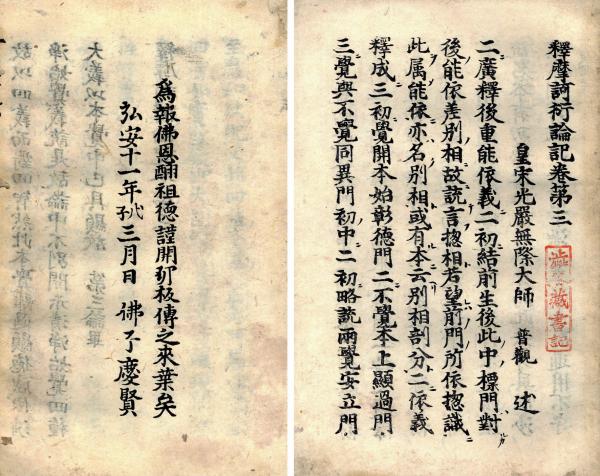 釋摩訶衍論記卷第三
皇宋光嚴無際大師 普觀 述
二廣釋後重能依義二初結前生後此中標門對
後能依差別相故說言揔相若望前門所依揔識
此属能依亦名別相或有本云別相剖分二依義
釋成三初覺開本始彰德門二不覺本上顯過門
三覺與不覺同異門初中二初略説兩覺安立門
藏書記
爲報佛恩酬祖德謹開印板傳之來葉矣
弘安十一年戊子三月日 佛子慶賢